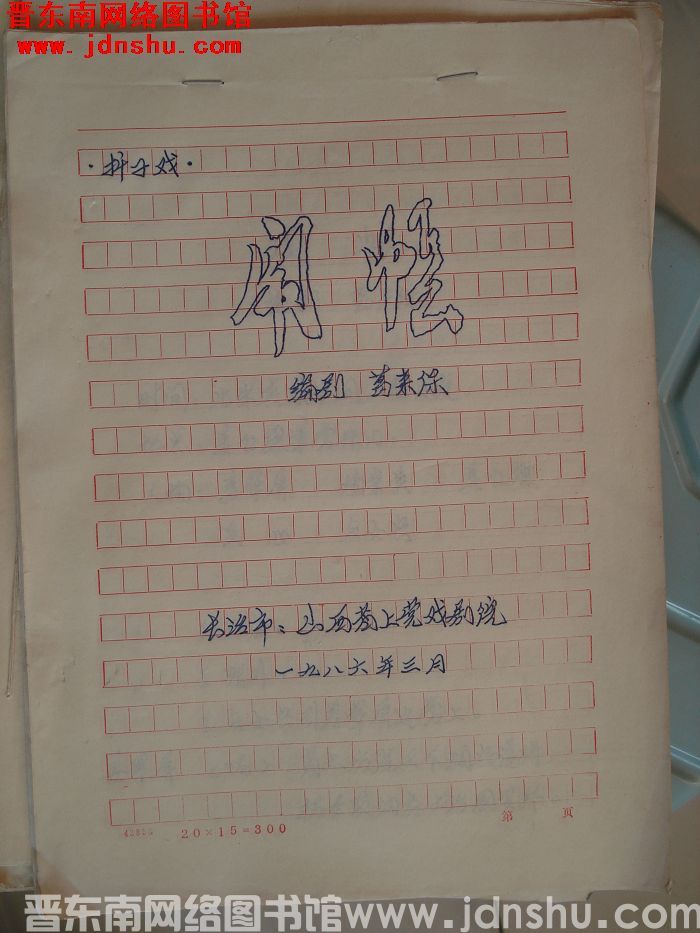 晋东南网络图书馆
www.jdnshu.com
·折子戏·
闹
编剧 葛来保
长治市：山西省上党戏剧院
一九八六年三月
20×15=300
第 页
晋东南网络图书馆www.jdnshu.com